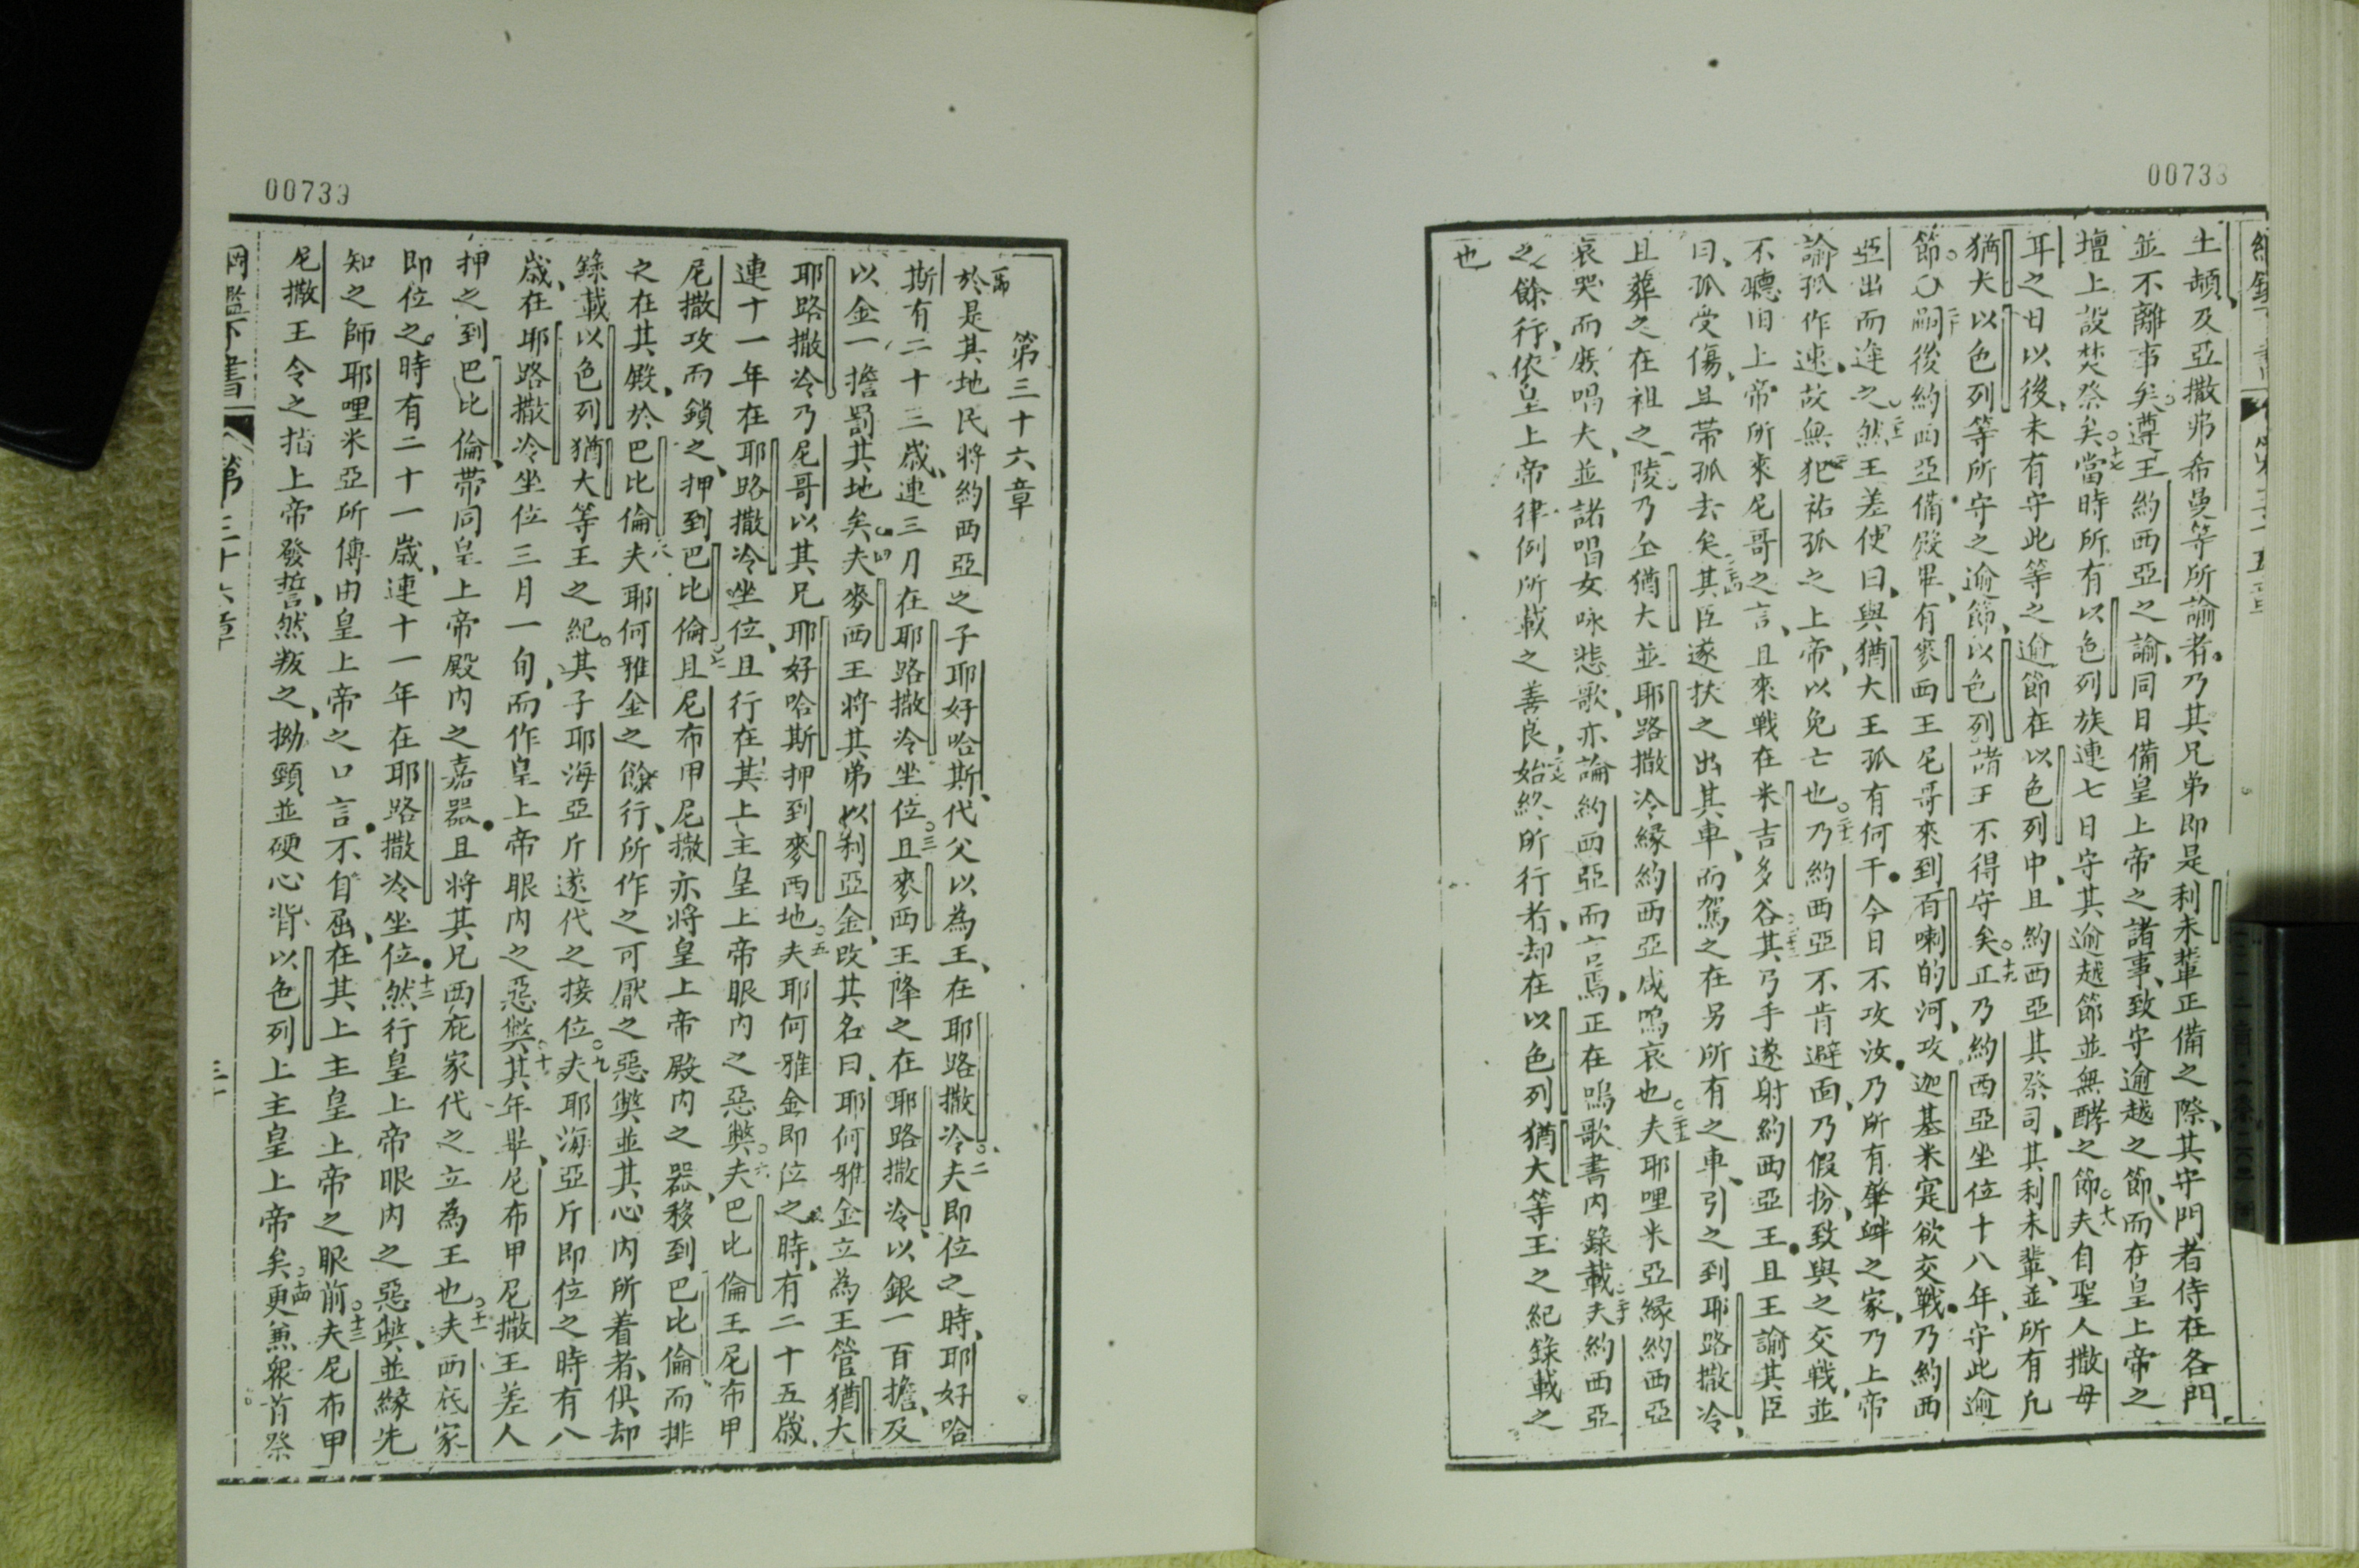 00733
土頡及亞撒弗希曼等所諭者乃其兄弟即是利未輩正備之際其守門者侍在各門
並不離事矣遵王約西亞之諭同日備皇上帝之諸事致守逾越之節而在皇上帝之
壇上設焚祭矣○十七當時所有以色列族連七日守其逾越節並無酵之節○十八夫自聖人撒母
耳之日以後未有守此等之逾節在以色列中且約西亞其祭司其利未輩並所有凡
猶大以色列等所守之逾節以色列諸王不得守矣○十九正乃約西亞坐位十八年守此逾
節○二十嗣後約西亞備殿畢有麥西王尼哥來到百喇的河攻迦基米寔欲交戰乃約西
亞出而逆之○二一然王差使曰與猶大王孤有何干今日不攻汝乃所有肇衅之家乃上帝
諭孤作速故無犯祐孤之上帝以免亡也○二二乃約西亞不肯避面乃假扮致與之交戰並
不聽由上帝所來尼哥之言且來戰在米吉多谷○二三其弓手遂射約西亞王且王諭其臣
曰孤受傷且帶孤去矣○二四其臣遂扶之出其車而駕之在另所有之車引之到耶路撒冷
且葬之在祖之陵乃仝猶大並耶路撒冷緣約西亞成嗚哀也○二五夫耶哩米亞緣約西亞
哀哭而厥唱大並諸唱女咏悲歌亦論約西亞而言焉正在嗚歌書內錄載○二六夫約西亞
之餘行依皇上帝律例所載之善良○二七始終所行者却在以色列猶大等王之紀錄載之
也
00739
第三十六章
一節於是其地民將約西亞之子耶好哈斯代父以為王在耶路撒冷○二夫即位之時耶好哈
斯有二十三歲連三月在耶路撒冷坐位○三且麥西王降之在耶路撒冷以銀一百擔及
以金一擔罰其地矣○四夫麥西王將其弟以利亞金改其名曰耶何雅金立為王管猶大
耶路撒冷乃尼哥以其兄耶好哈斯押到麥西地○五夫耶何雅金即位之時有二十五歲
連十一年在耶路撒冷坐位且行在其上主皇上帝眼內之惡獘○六夫巴比倫王尼布甲
尼撒攻而鎖之押到巴比倫○七且尼布甲尼撒亦將皇上帝殿內之器移到巴比倫而排
之在其殿於巴比倫○八夫耶何雅金之餘行所作之可厭之惡獘並其心內所着者俱却
錄載以色列猶大等王之紀其子耶海亞斤遂代之接位○九夫耶海亞斤即位之時有八
歲在耶路撒冷坐位三月一旬而作皇上帝眼內之惡獘○十其年畢尼布甲尼撒王差人
押之到巴比倫帶同皇上帝殿內之嘉器且將其兄西底家代之立為王也○十一夫西底家
即位之時有二十一歲連十一年在耶路撒冷坐位○十二然行皇上帝眼內之惡獘並緣先
知之師耶哩米亞所傳由皇上帝之口言不自屈在其上主皇上帝之眼前○十三夫尼布甲
尼撒王令之指上帝發誓然叛之拗頸並硬心背以色列上主皇上帝矣○十四更兼眾首祭
第三十六章